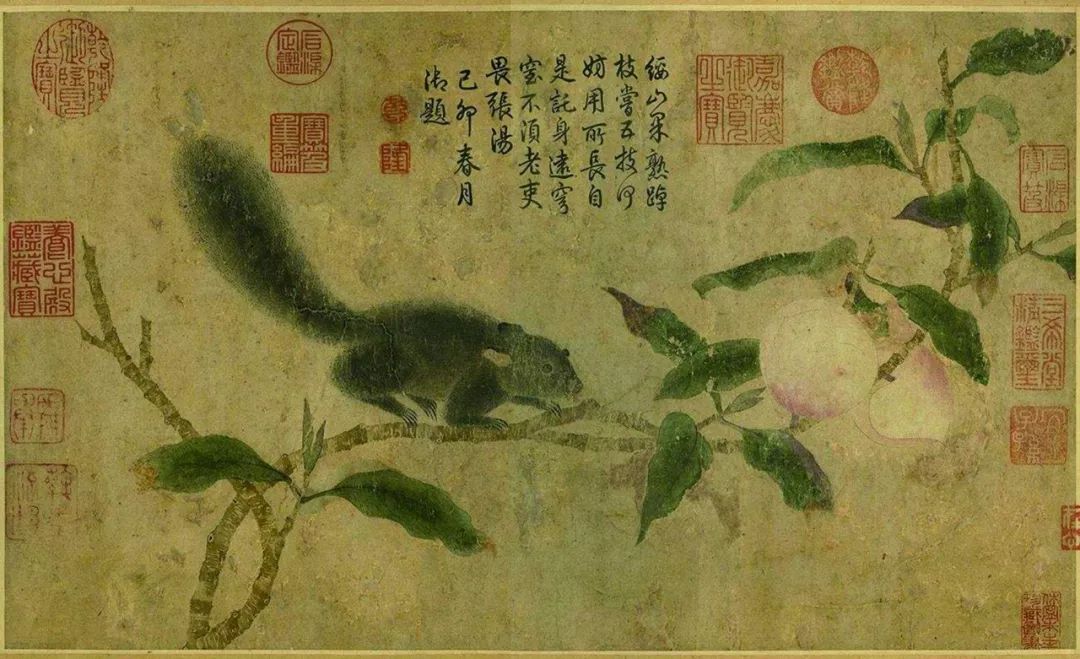 綏山果熟踔
枝嘗五技何
妨用所長自
是託身遠穹
窒不須老吏
畏張湯
己卯春月
御題
乾
隆
石渠
寶笈
三希堂
精鑑璽
宜
子孫
乾隆
鑑賞
嘉慶
御覽
之寶
石渠
定鑑
寶笈
重編
乾隆
御覽
之寶
養心殿
鑑藏寶